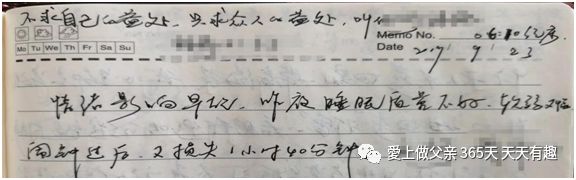 不求自己的益处，只求众人的益处，叫
Memo No. 06:10起床
Mo Tu We Th Fr Sa Su
Date 2019 / 9 / 23
情绪影响早起，昨夜睡眠质量不好，
闹钟过后，又损失1小时40分钟
愛上做父亲 365天 天天有趣